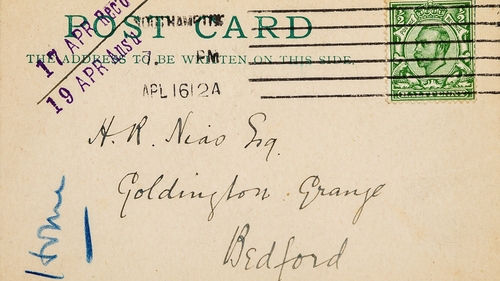 POST CARD
THE ADDRESS TO BE WRITTEN ON THIS SIDE.
17 APR Recd
19 APR Ansd
SOUTHAMPTON
7. PM
APL 16 12 A
H. R. Nias Esq.
Goldington Grange
Bedford
Home